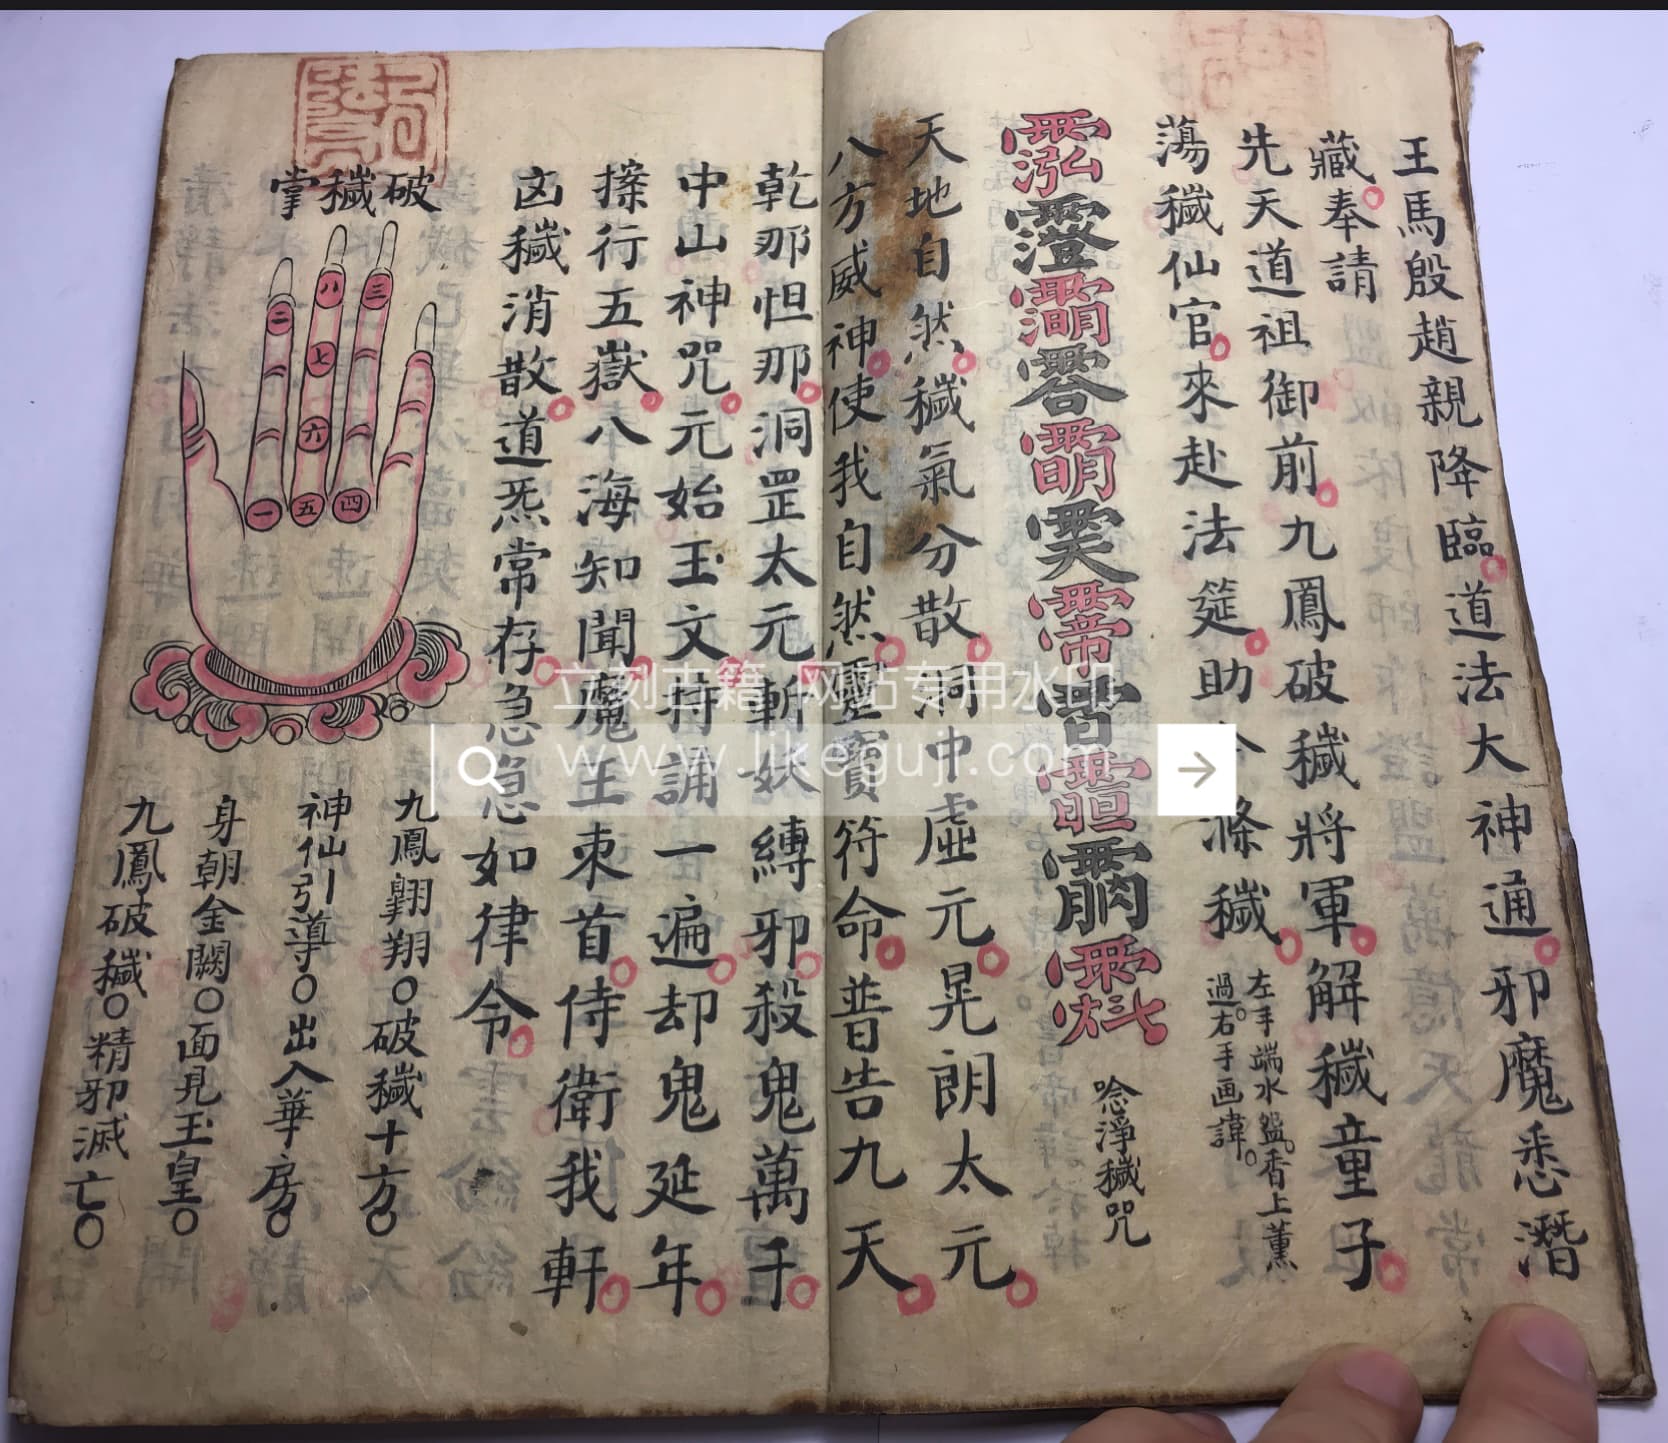 王馬殷趙親降臨道法大神通邪魔悉潛
藏奉請
先天道祖御前九鳳破穢將軍解穢童子
蕩穢仙官來赴法筵助今滌穢
左手端水盌香上薰
過右手画諱
唸淨穢咒
天地自然穢氣分散洞中虛元晃朗太元
八方威神使我自然靈寶符命普告九天
乾那怛那洞罡太元斬妖縛邪殺鬼萬千
中山神咒元始玉文持誦一遍却鬼延年
搽行五嶽八海知聞魔王束首侍衛我軒
凶穢消散道炁常存急急如律令
破穢掌
三
八
二
七
六
一
五
四
九鳳翱翔〇破穢十方〇
神仙引導〇出入華房〇
身朝金闕〇面見玉皇〇
九鳳破穢〇精邪滅亡〇
立刻古籍 网站专用水印
www.likeguji.com